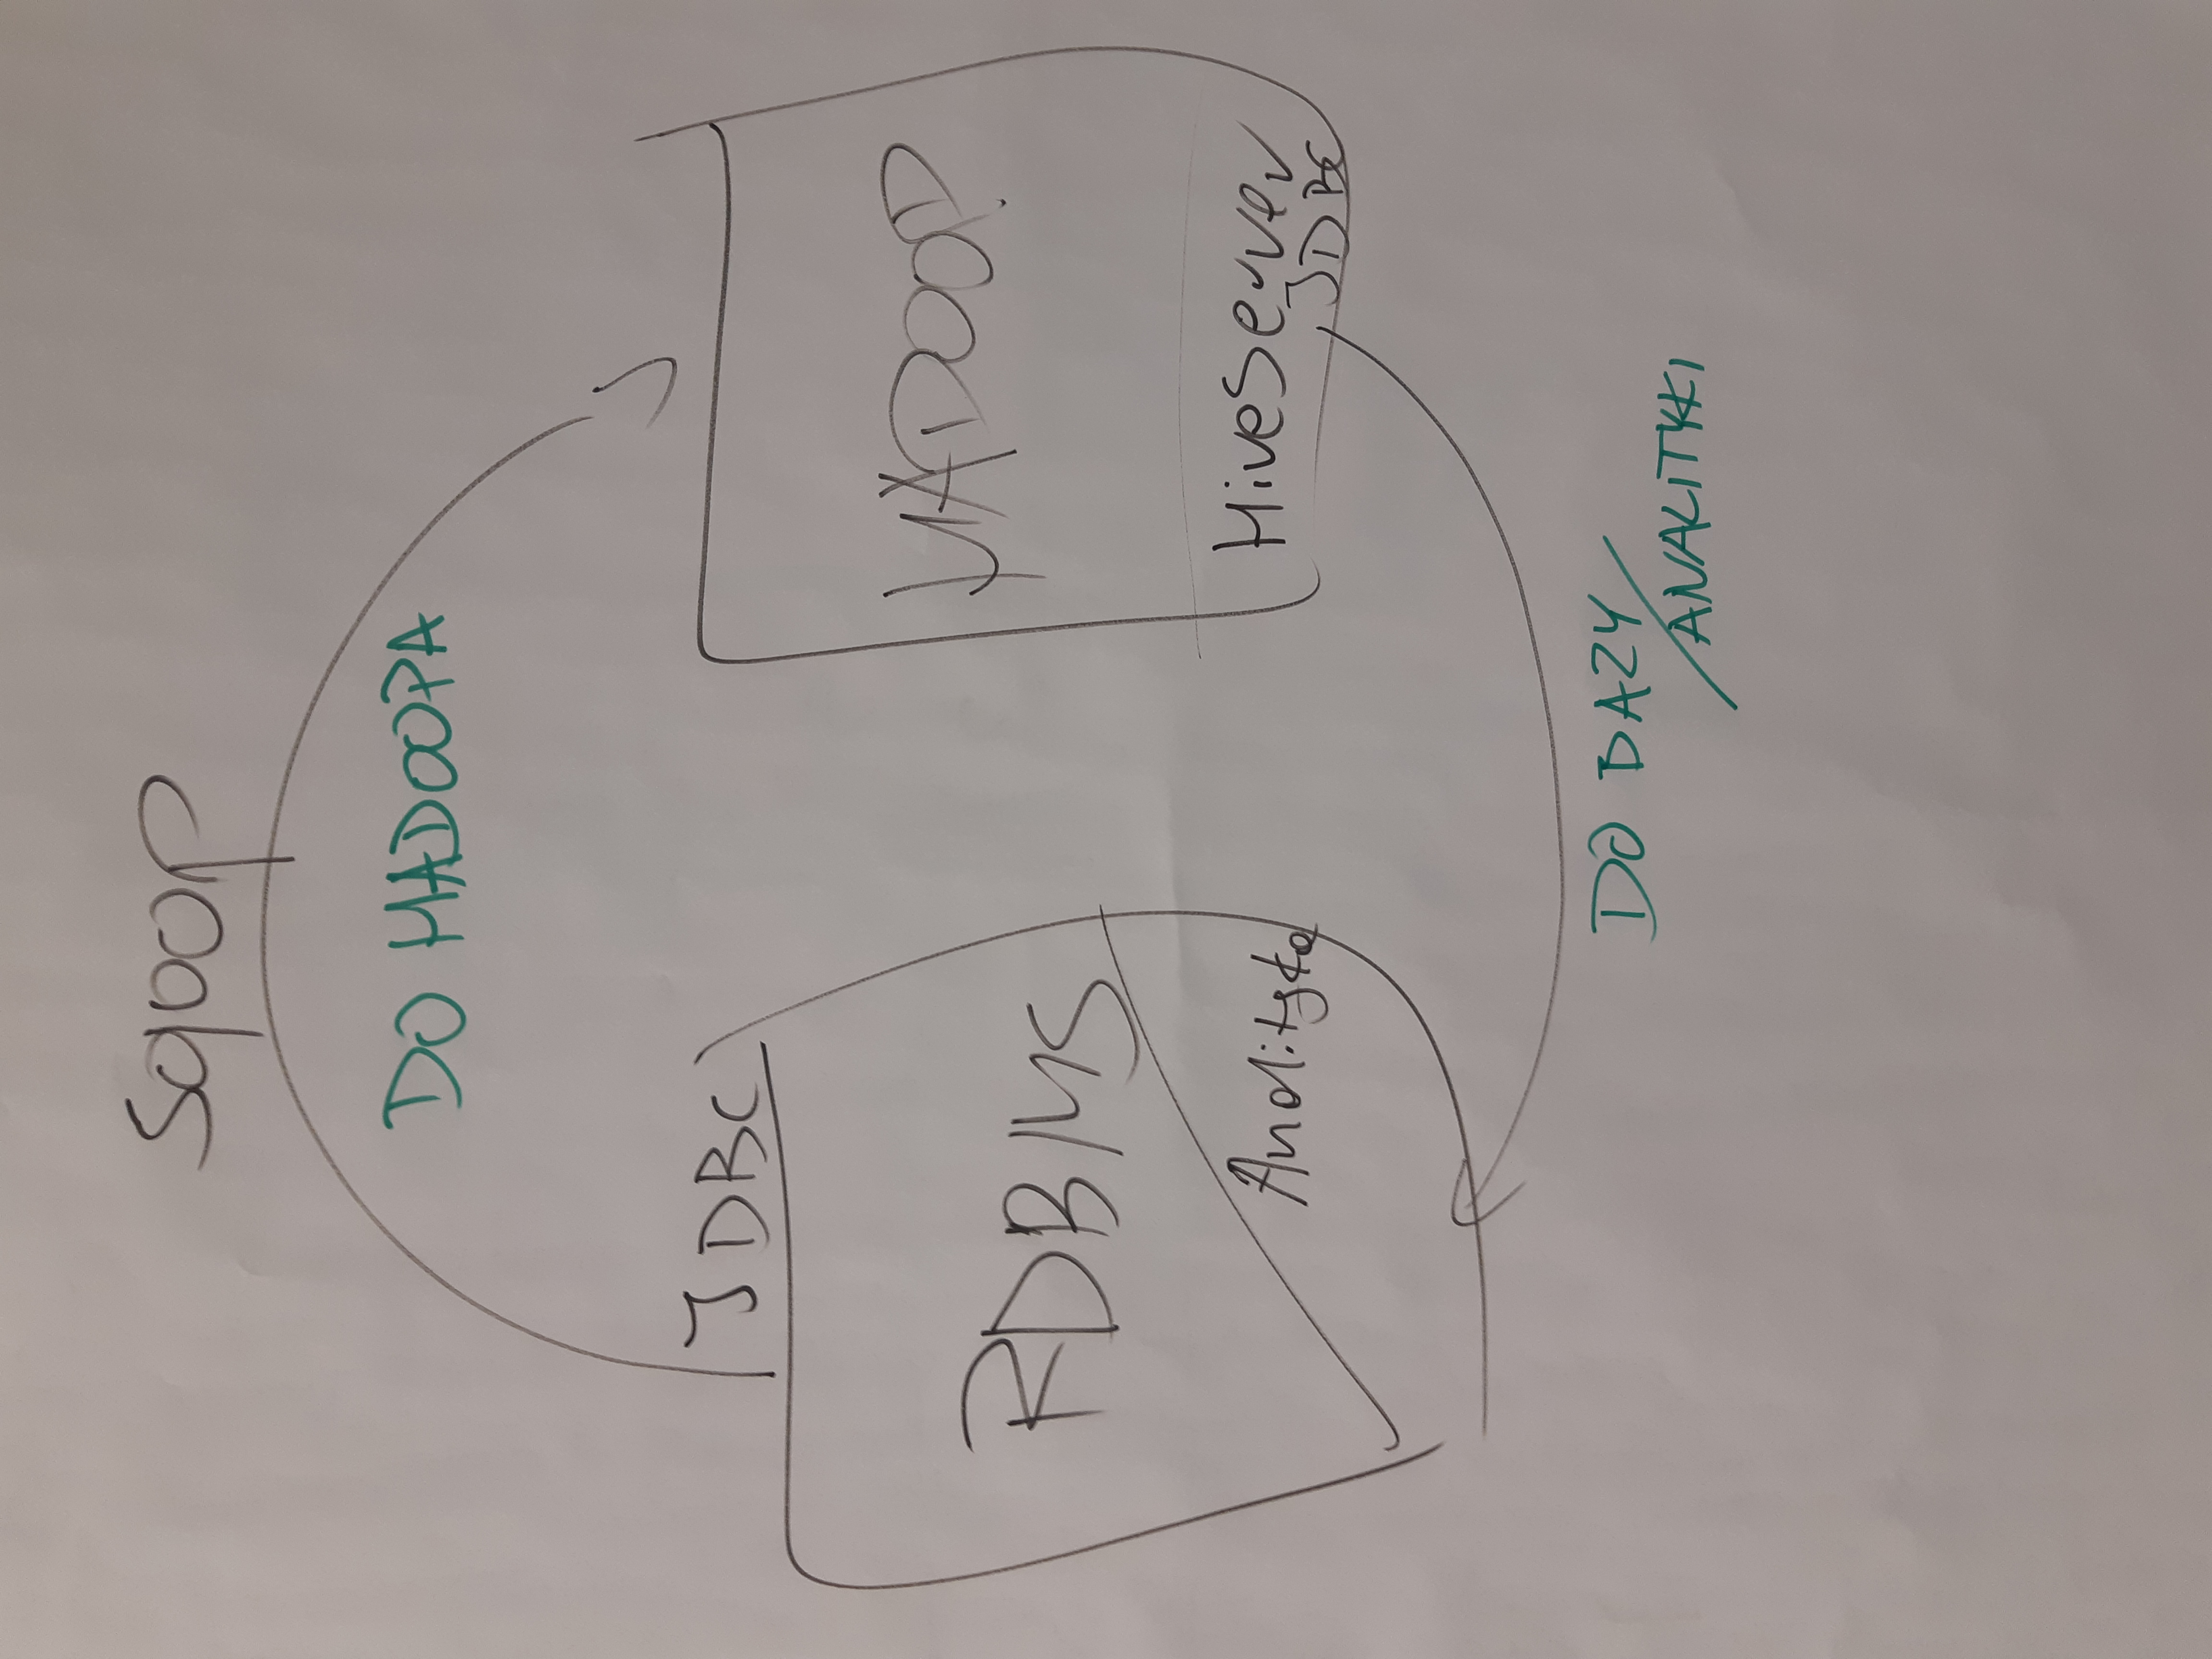 Sqoop
DO HADOOPA
JDBC
RDBMS
HADOOP
Analityka
HiveServer
JDBC
DO BAZY
/ANALITYKI